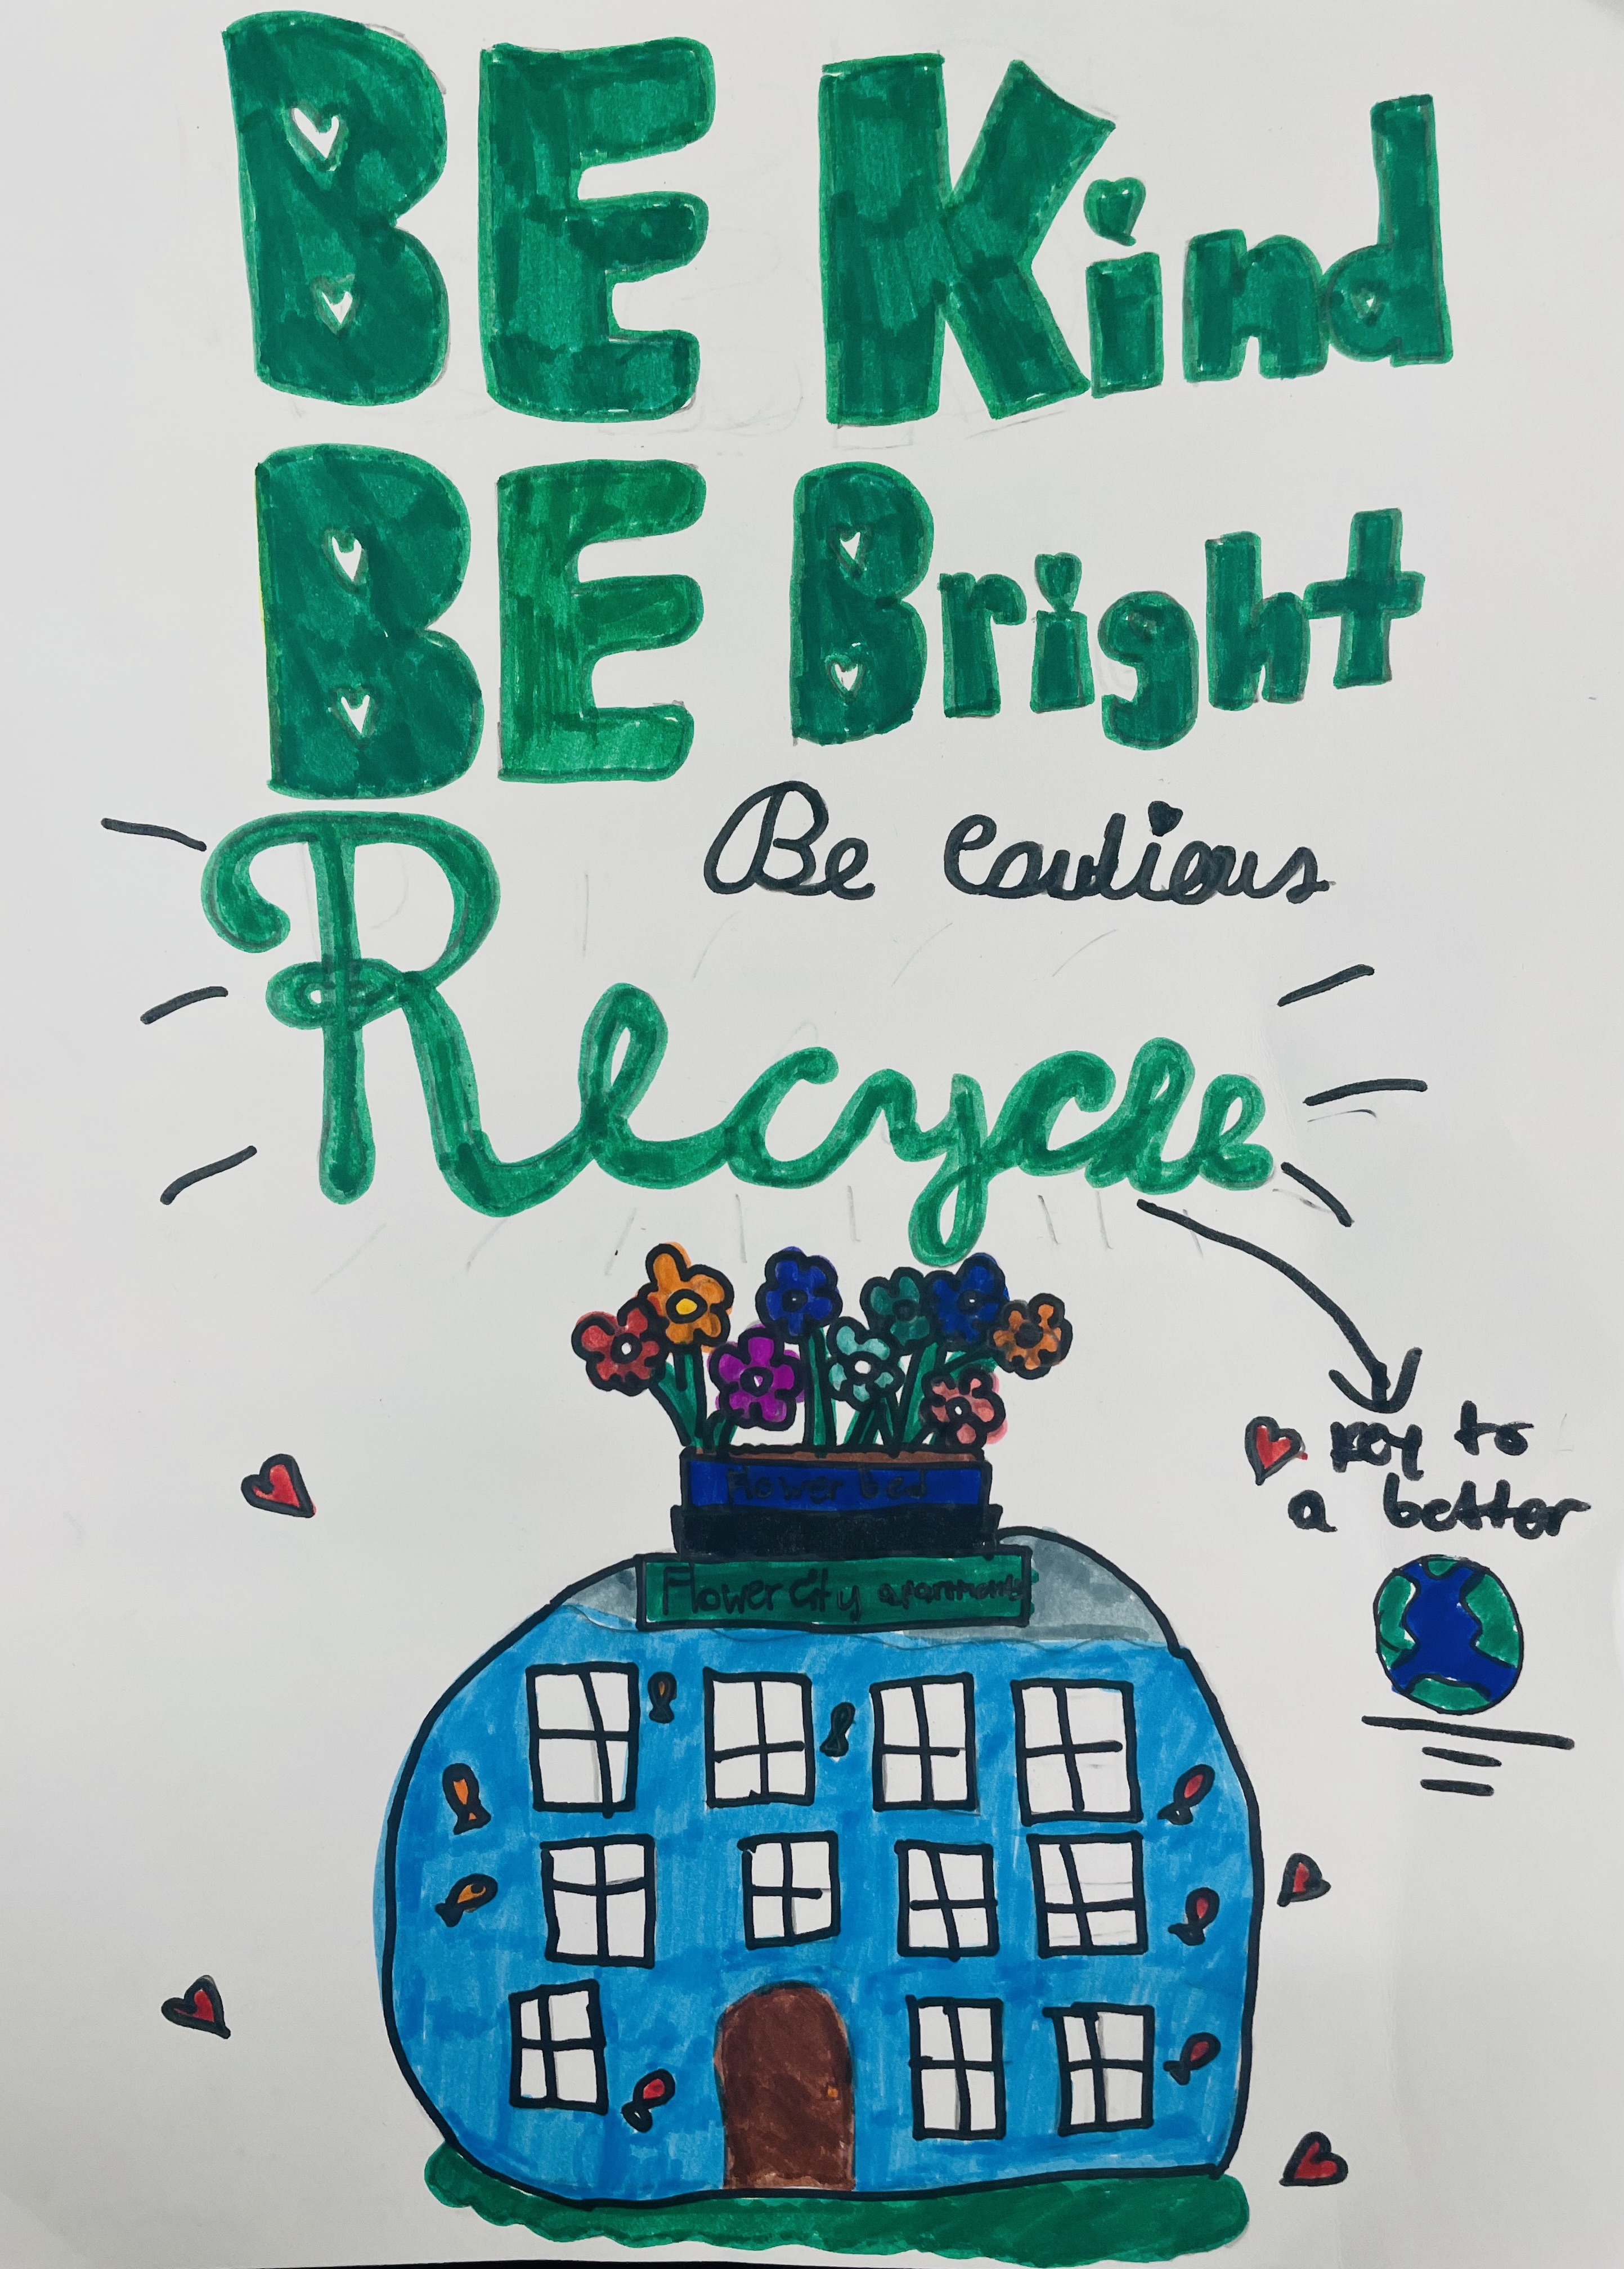 BE Kind
BE Bright
Be cautious
Recycle
key to
a better
Flower bed
Flower City apartments